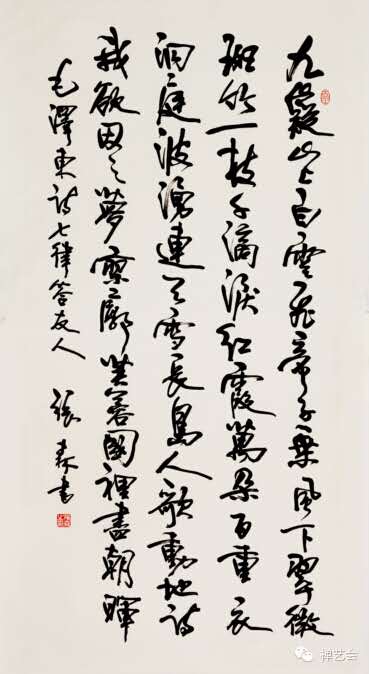 九嶷山上白雲飛帝子乘風下翠微
斑竹一枝千滴淚紅霞萬朵百重衣
洞庭波湧連天雪長島人歌動地詩
我欲因之夢寥廓芙蓉國裡盡朝暉
毛澤東詩七律答友人 張森書
禅艺会